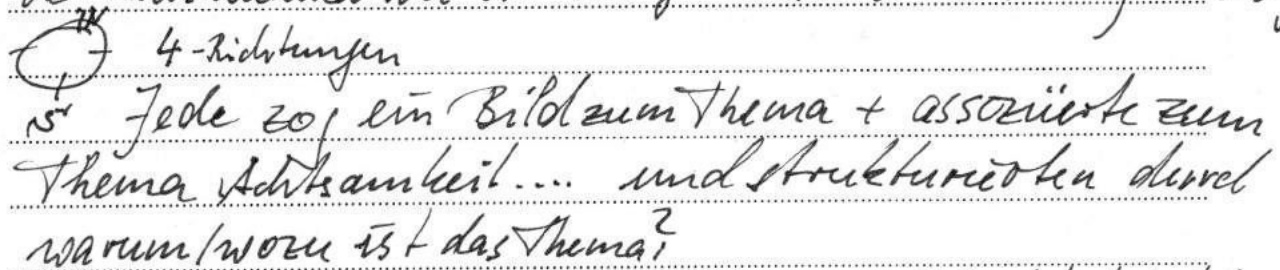 N
4-Richtungen
S Jede zog ein Bild zum Thema + assoziierte zum
Thema Achtsamkeit.... und strukturierten durch
warum/wozu ist das Thema?